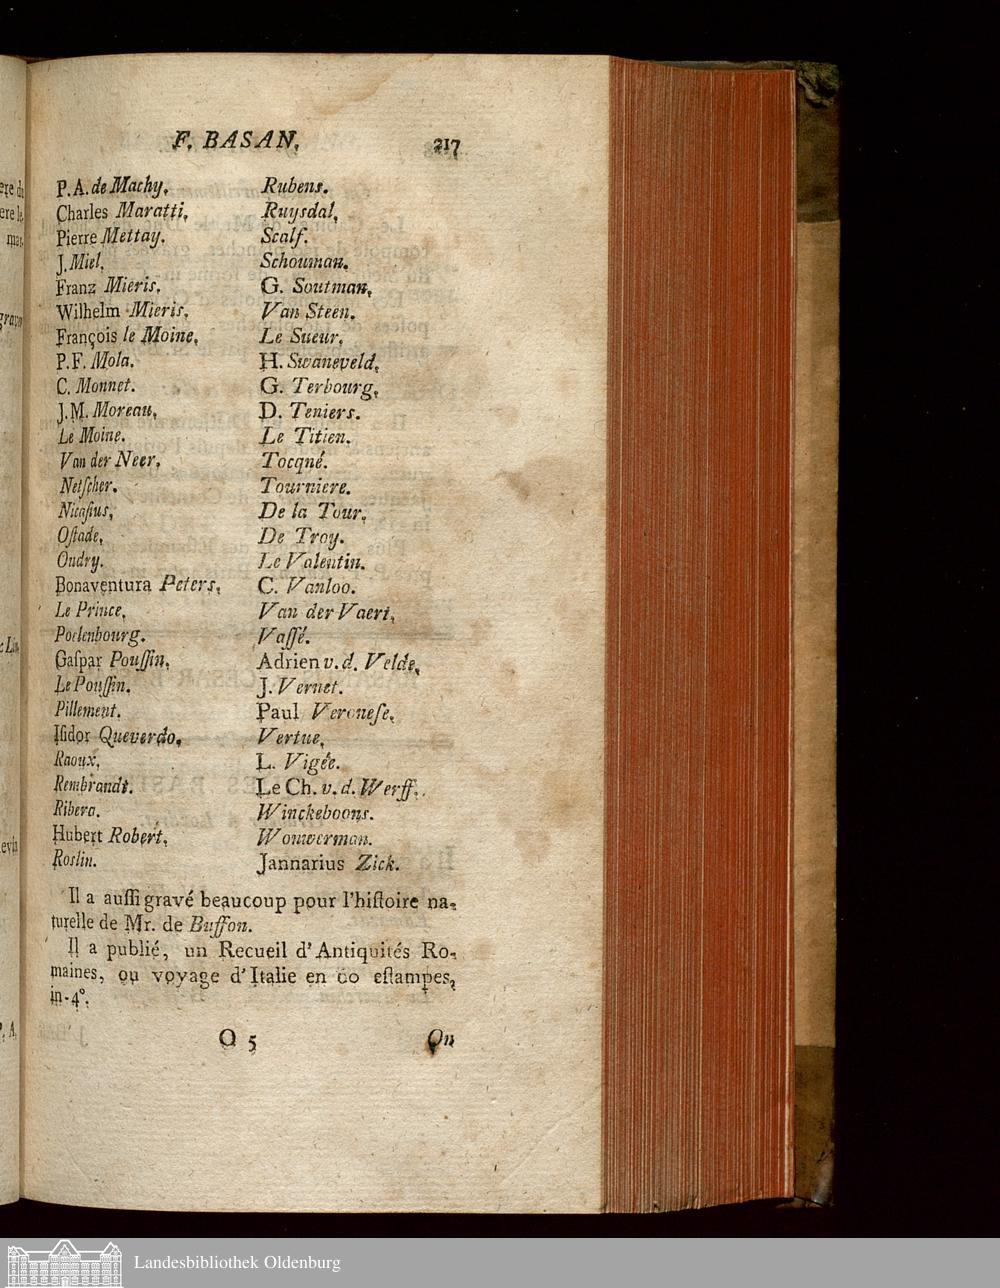 F. BASAN.
217
P. A. de Machy.
Charles Maratti.
Pierre Mettay.
J. Miel.
Franz Mieris.
Wilhelm Mieris.
François le Moine.
P. F. Mola.
C. Monnet.
J. M. Moreau.
Le Moine.
Van der Neer.
Netſcher.
Nicaſius.
Oſtade.
Oudry.
Bonaventura Peters.
Le Prince.
Poelenbourg.
Gaſpar Pouſſin.
Le Pouſſin.
Pillement.
Iſidor Queverdo.
Raoux.
Rembrandt.
Ribera.
Hubert Robert.
Roslin.
Rubens.
Ruysdal.
Scalf.
Schouman.
G. Soutman.
Van Steen.
Le Sueur.
H. Swaneveld.
G. Terbourg.
D. Teniers.
Le Titien.
Tocqné.
Tourniere.
De la Tour.
De Troy.
Le Valentin.
C. Vanloo.
Van der Vaert.
Vaſſé.
Adrien v. d. Velde.
J. Vernet.
Paul Veroneſe.
Vertue.
L. Vigée.
Le Ch. v. d. Werff.
Winckeboons.
Wouwerman.
Jannarius Zick.
Il a auſſi gravé beaucoup pour l'hiſtoire na-
turelle de Mr. de Buffon.
Il a publié, un Recueil d'Antiquités Ro-
maines, ou voyage d'Italie en 60 eſtampes,
in-4°.
O 5
On
Landesbibliothek Oldenburg